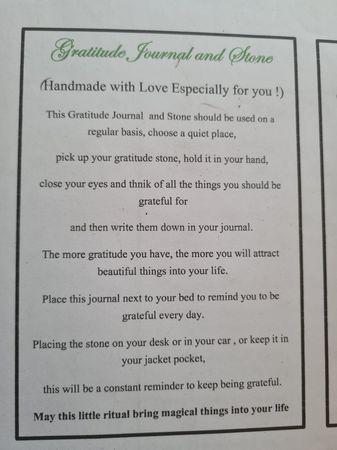 Gratitude Journal and Stone
(Handmade with Love Especially for you !)
This Gratitude Journal and Stone should be used on a
regular basis, choose a quiet place,
pick up your gratitude stone, hold it in your hand,
close your eyes and thnik of all the things you should be
grateful for
and then write them down in your journal.
The more gratitude you have, the more you will attract
beautiful things into your life.
Place this journal next to your bed to remind you to be
grateful every day.
Placing the stone on your desk or in your car , or keep it in
your jacket pocket,
this will be a constant reminder to keep being grateful.
May this little ritual bring magical things into your life